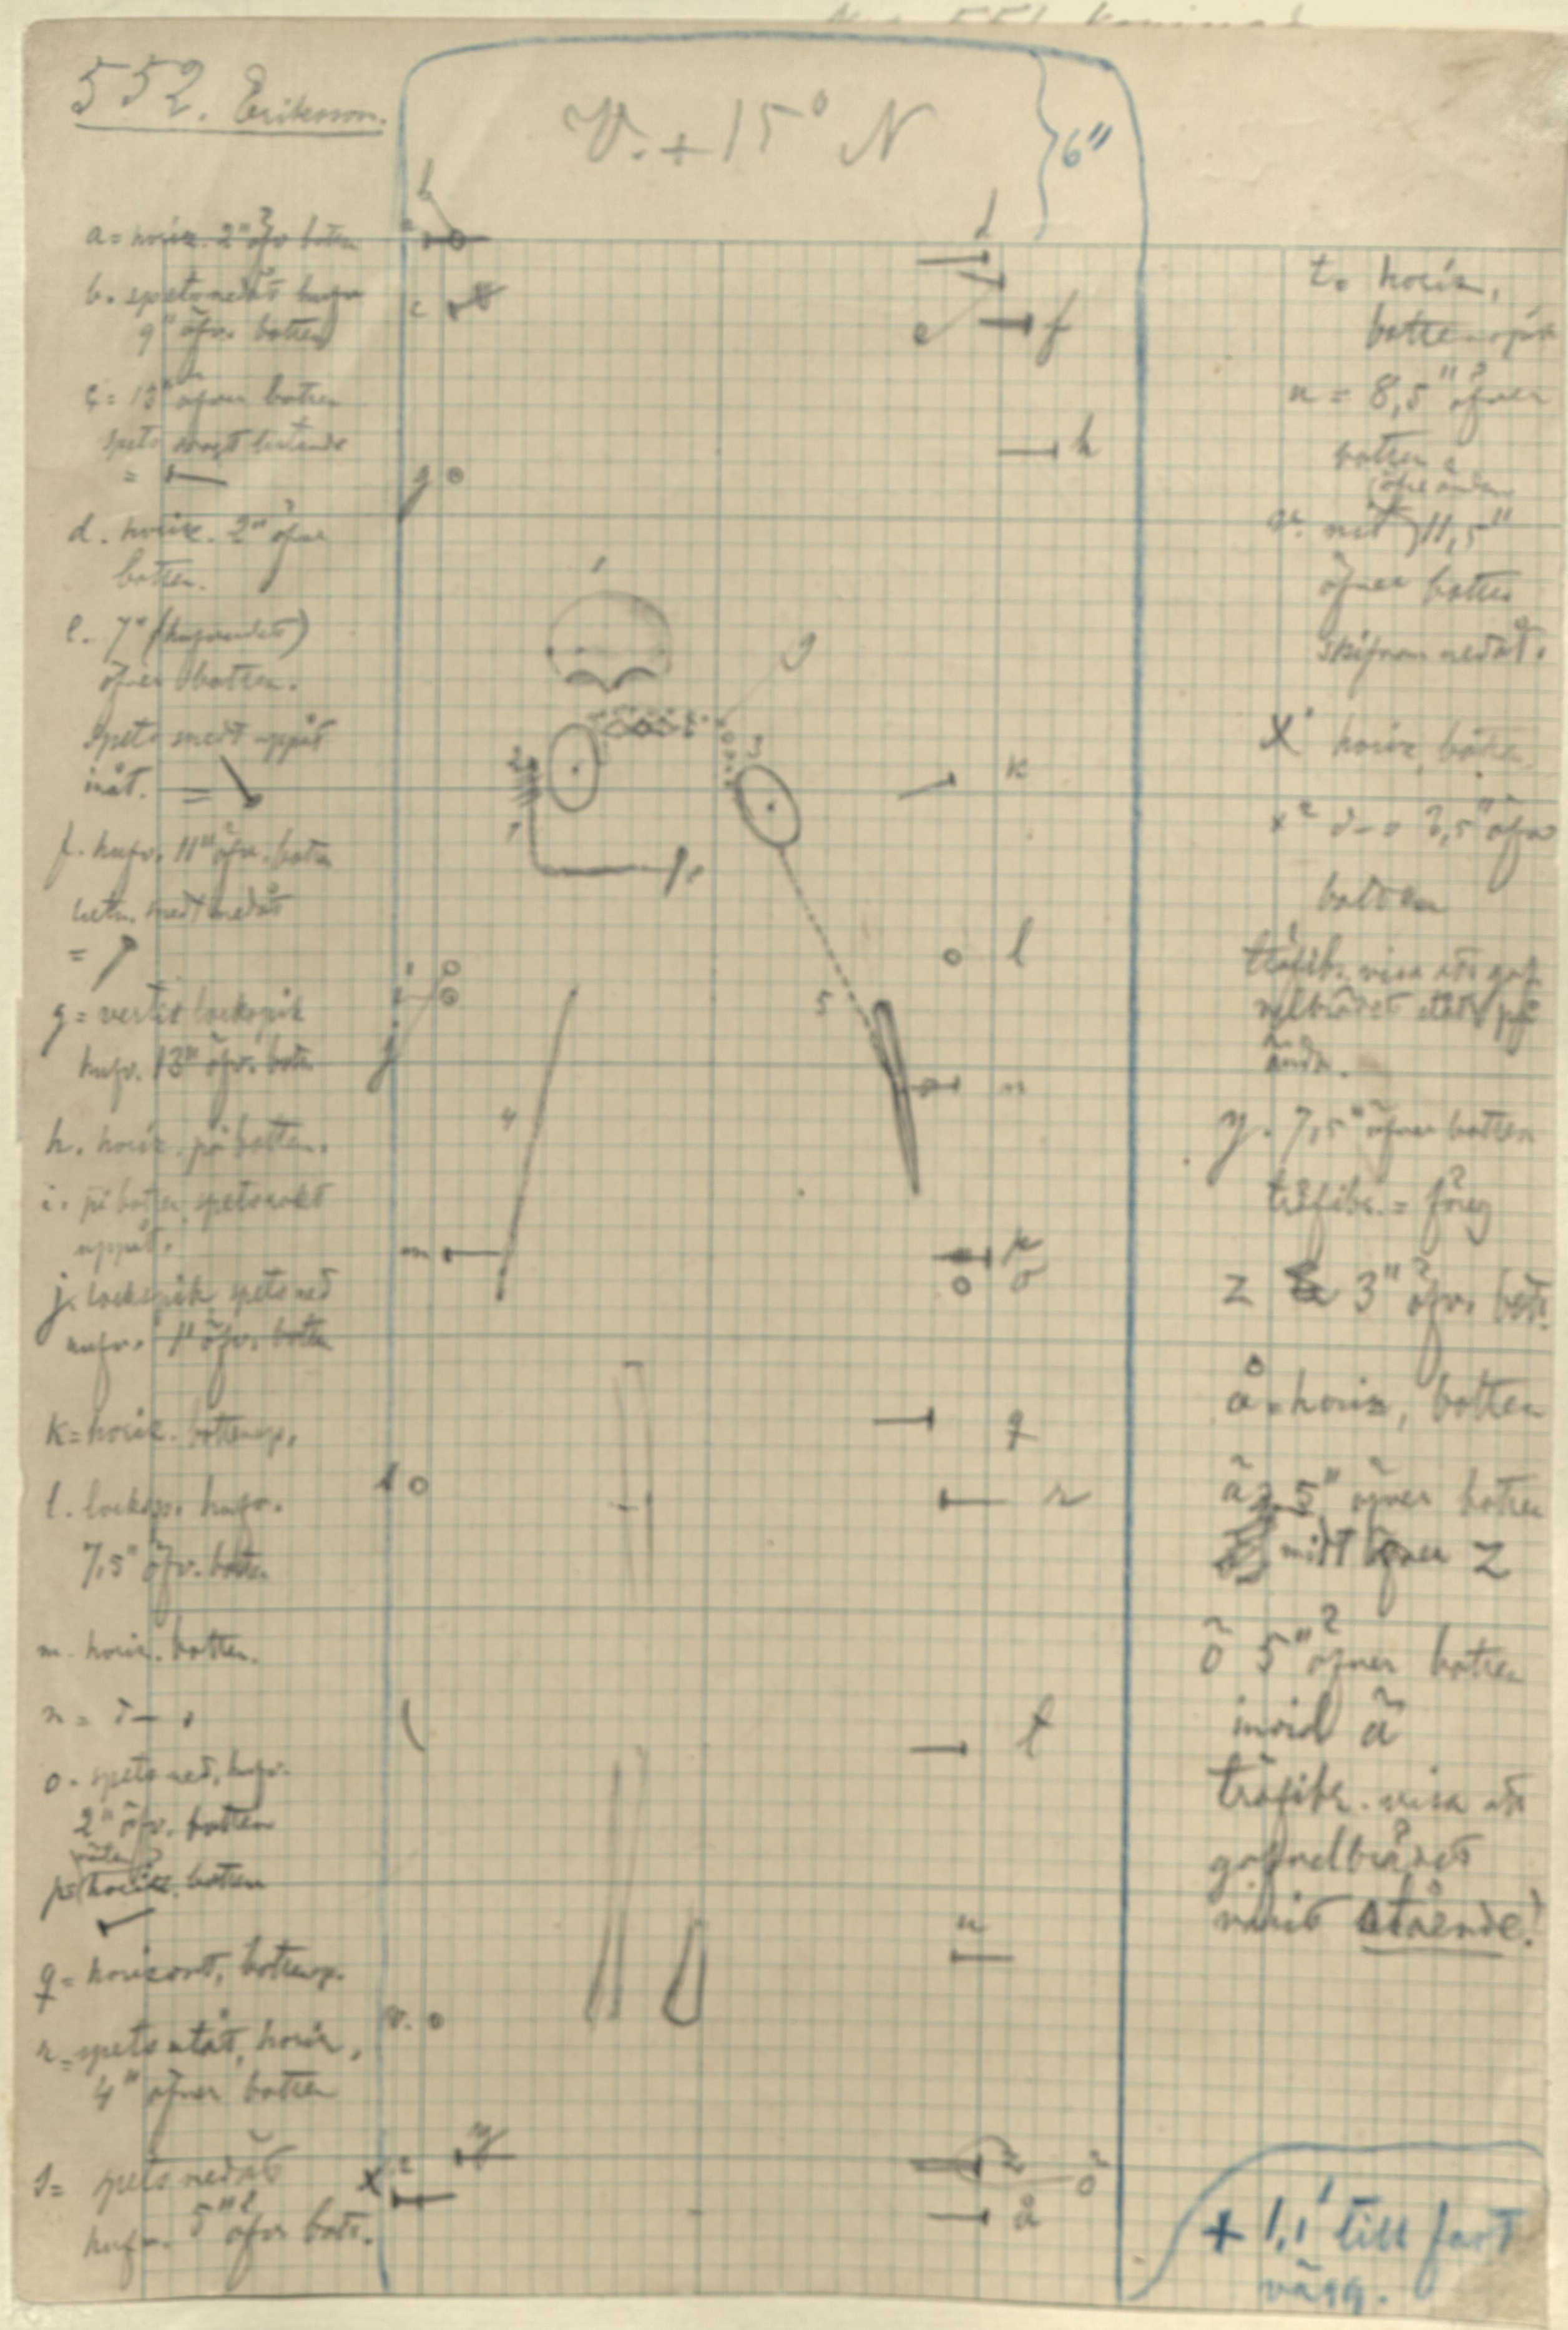 552. Erikson.
V. + 15° N
6"
a = horiz. 2" öfv botten
b. spets nedåt hufv
9" öfv. botten
c = 13" öfver botten
spets snett lutande
=
d. horiz. 2" öfver
botten.
e. 7" (hufvudet)
öfver botten.
spets snett uppåt
inåt. =
f. hufv. 11" öfv. botten
lutn. snett nedåt
=
g = vertik lockspik
hufv. 13" öfv. botten
h. horiz. på botten.
i. på botten, spets rakt
uppåt.
j. lockspik, spets ned
hufv. 1" öfv. botten
k = horiz. bottensp.
l. locksp. hufv.
7,5" öfv. botten
m. horiz. botten.
n =
o. spets ned, hufv.
2" öfv. botten
p = horiz. botten
q = horizont, bottensp.
r = spets utåt, horiz.,
4" öfver botten
s = spets nedåt
hufv. 5" öfver bott.
b
a
c
d
e
f
h
g
1
g
2
3
k
1
i
j
l
5
n
4
m
p
o
q
s
r
t
u
v.
y
x 2
z
ö
å
t. horiz.
bottenspik
u = 8,5" öfver
botten
v. nit 11,5"
öfver botten
skifvan nedåt.
x' horiz, botten.
x² 3,5" öfver
botten
träfib. visa att gaf
velbrädet stått på
ända.
y. 7,5" öfver botten
träfibr. = föreg
z 3" öfv. bott.
å = horiz, botten
ä 5" öfver botten
midt öfver z
ö 5" öfver botten
invid ä
träfibr. visa att
gafvelbrädet
varit stående!
+ 1,1' till fast
vägg.